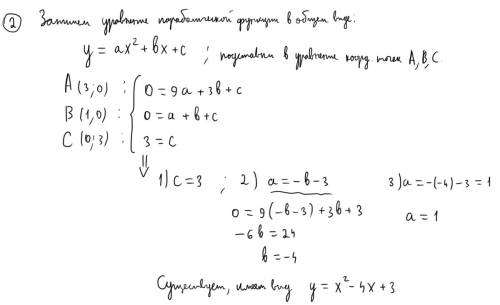 ② Запишем уравнение параболической функции в общем виде:
y = ax² + bx + c ; подставим в уравнение коорд. точек A, B, C
A (3; 0) : 0 = 9a + 3b + c
B (1; 0) : 0 = a + b + c
C (0; 3) : 3 = c
⇓
1) c = 3 ; 2) a = -b - 3 3) a = -(-4) - 3 = 1
0 = 9(-b-3) + 3b + 3 a = 1
-6b = 24
b = -4
Существует, имеет вид y = x² - 4x + 3